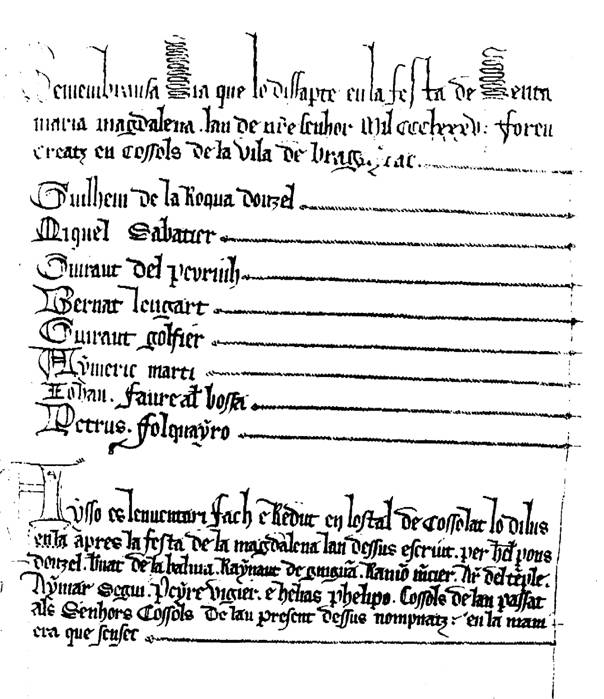 Remembransa sia que lo dissapte en la festa de senta
maria magdalena. lan de nre senhor Mil ccclxxxv. foren
creatz en cossols de la vila de bragayrac.
Guilhem de la Roqua donzel
Miquel Sabatier
Guiraut del peyruih
Bernat leugart
Guiraut golfier
Aymeric marti
Iohan. faure al boska
Petrus. folquayro
Aysso es lenventari fach e Redut en lostal de Cossolat lo dilus
en la apres la festa de la magdalena lan dessus escriut. per hel pons
donzel. bnat de la balma. Raynaut de . Ramo mcier. Ar del teple.
Aymar Segui. Peyre vigier. e helias phelipo. Cossols de lan passat
als Senhors Cossols De lan present dessus nompnatz. en la mani
era que senset